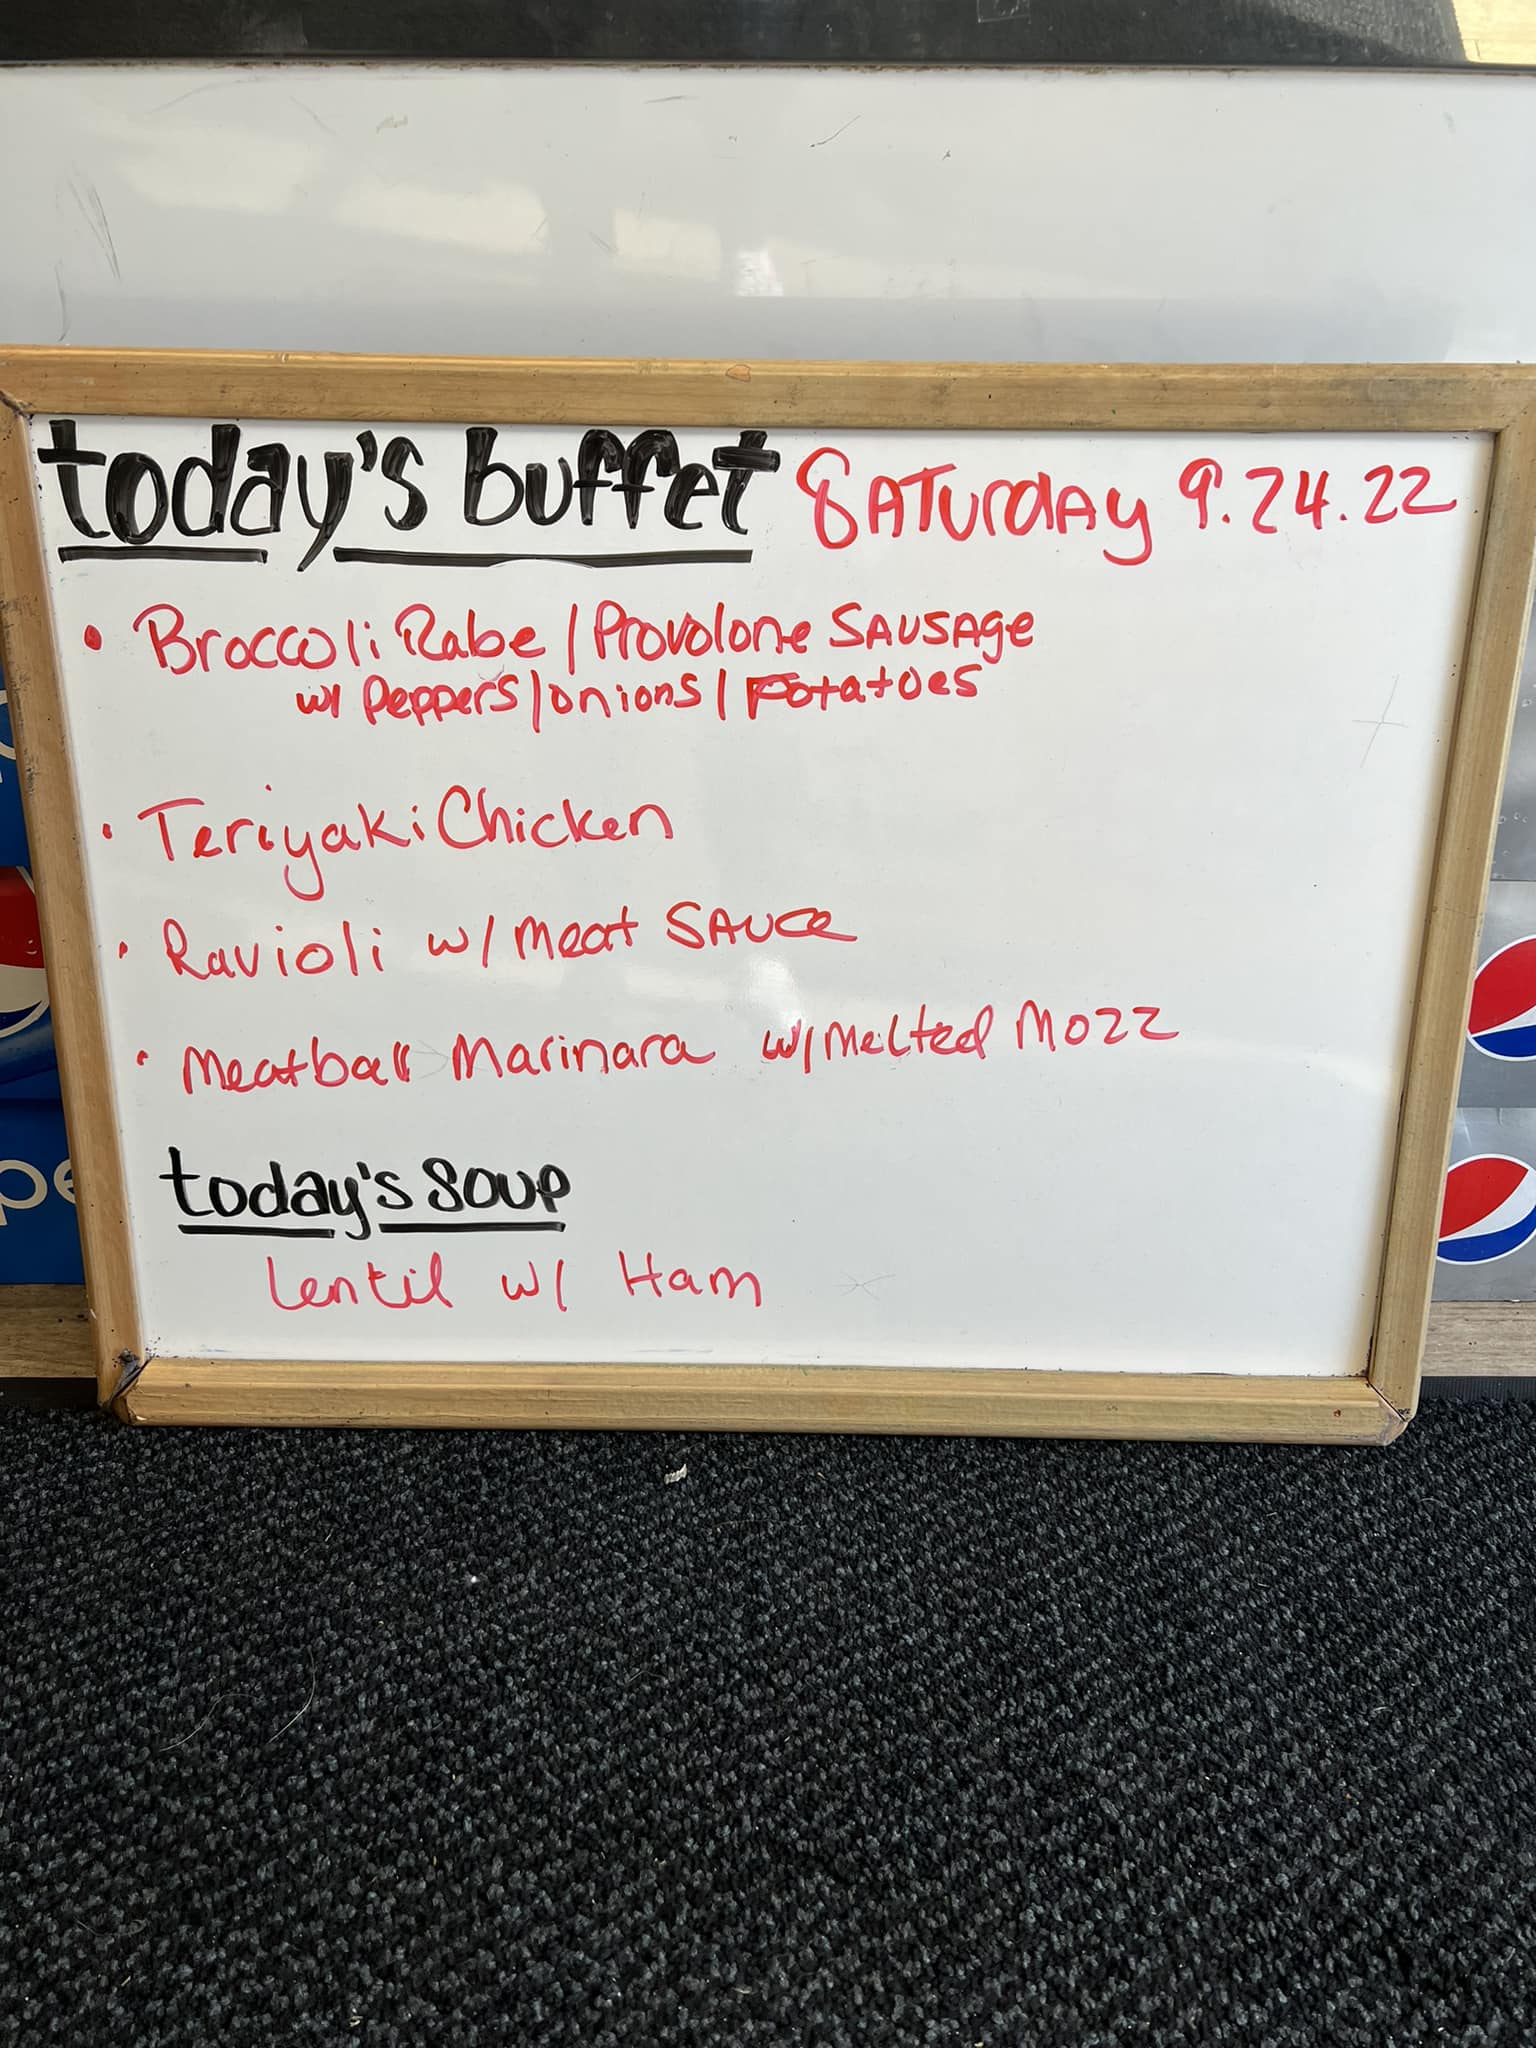 today's buffet Saturday 9.24.22
• Broccoli Rabe / Provolone Sausage
w/ Peppers/onions/Potatoes
• Teriyaki Chicken
• Ravioli w/ Meat Sauce
• Meatball Marinara w/ Melted Mozz
today's soup
Lentil w/ Ham
pe